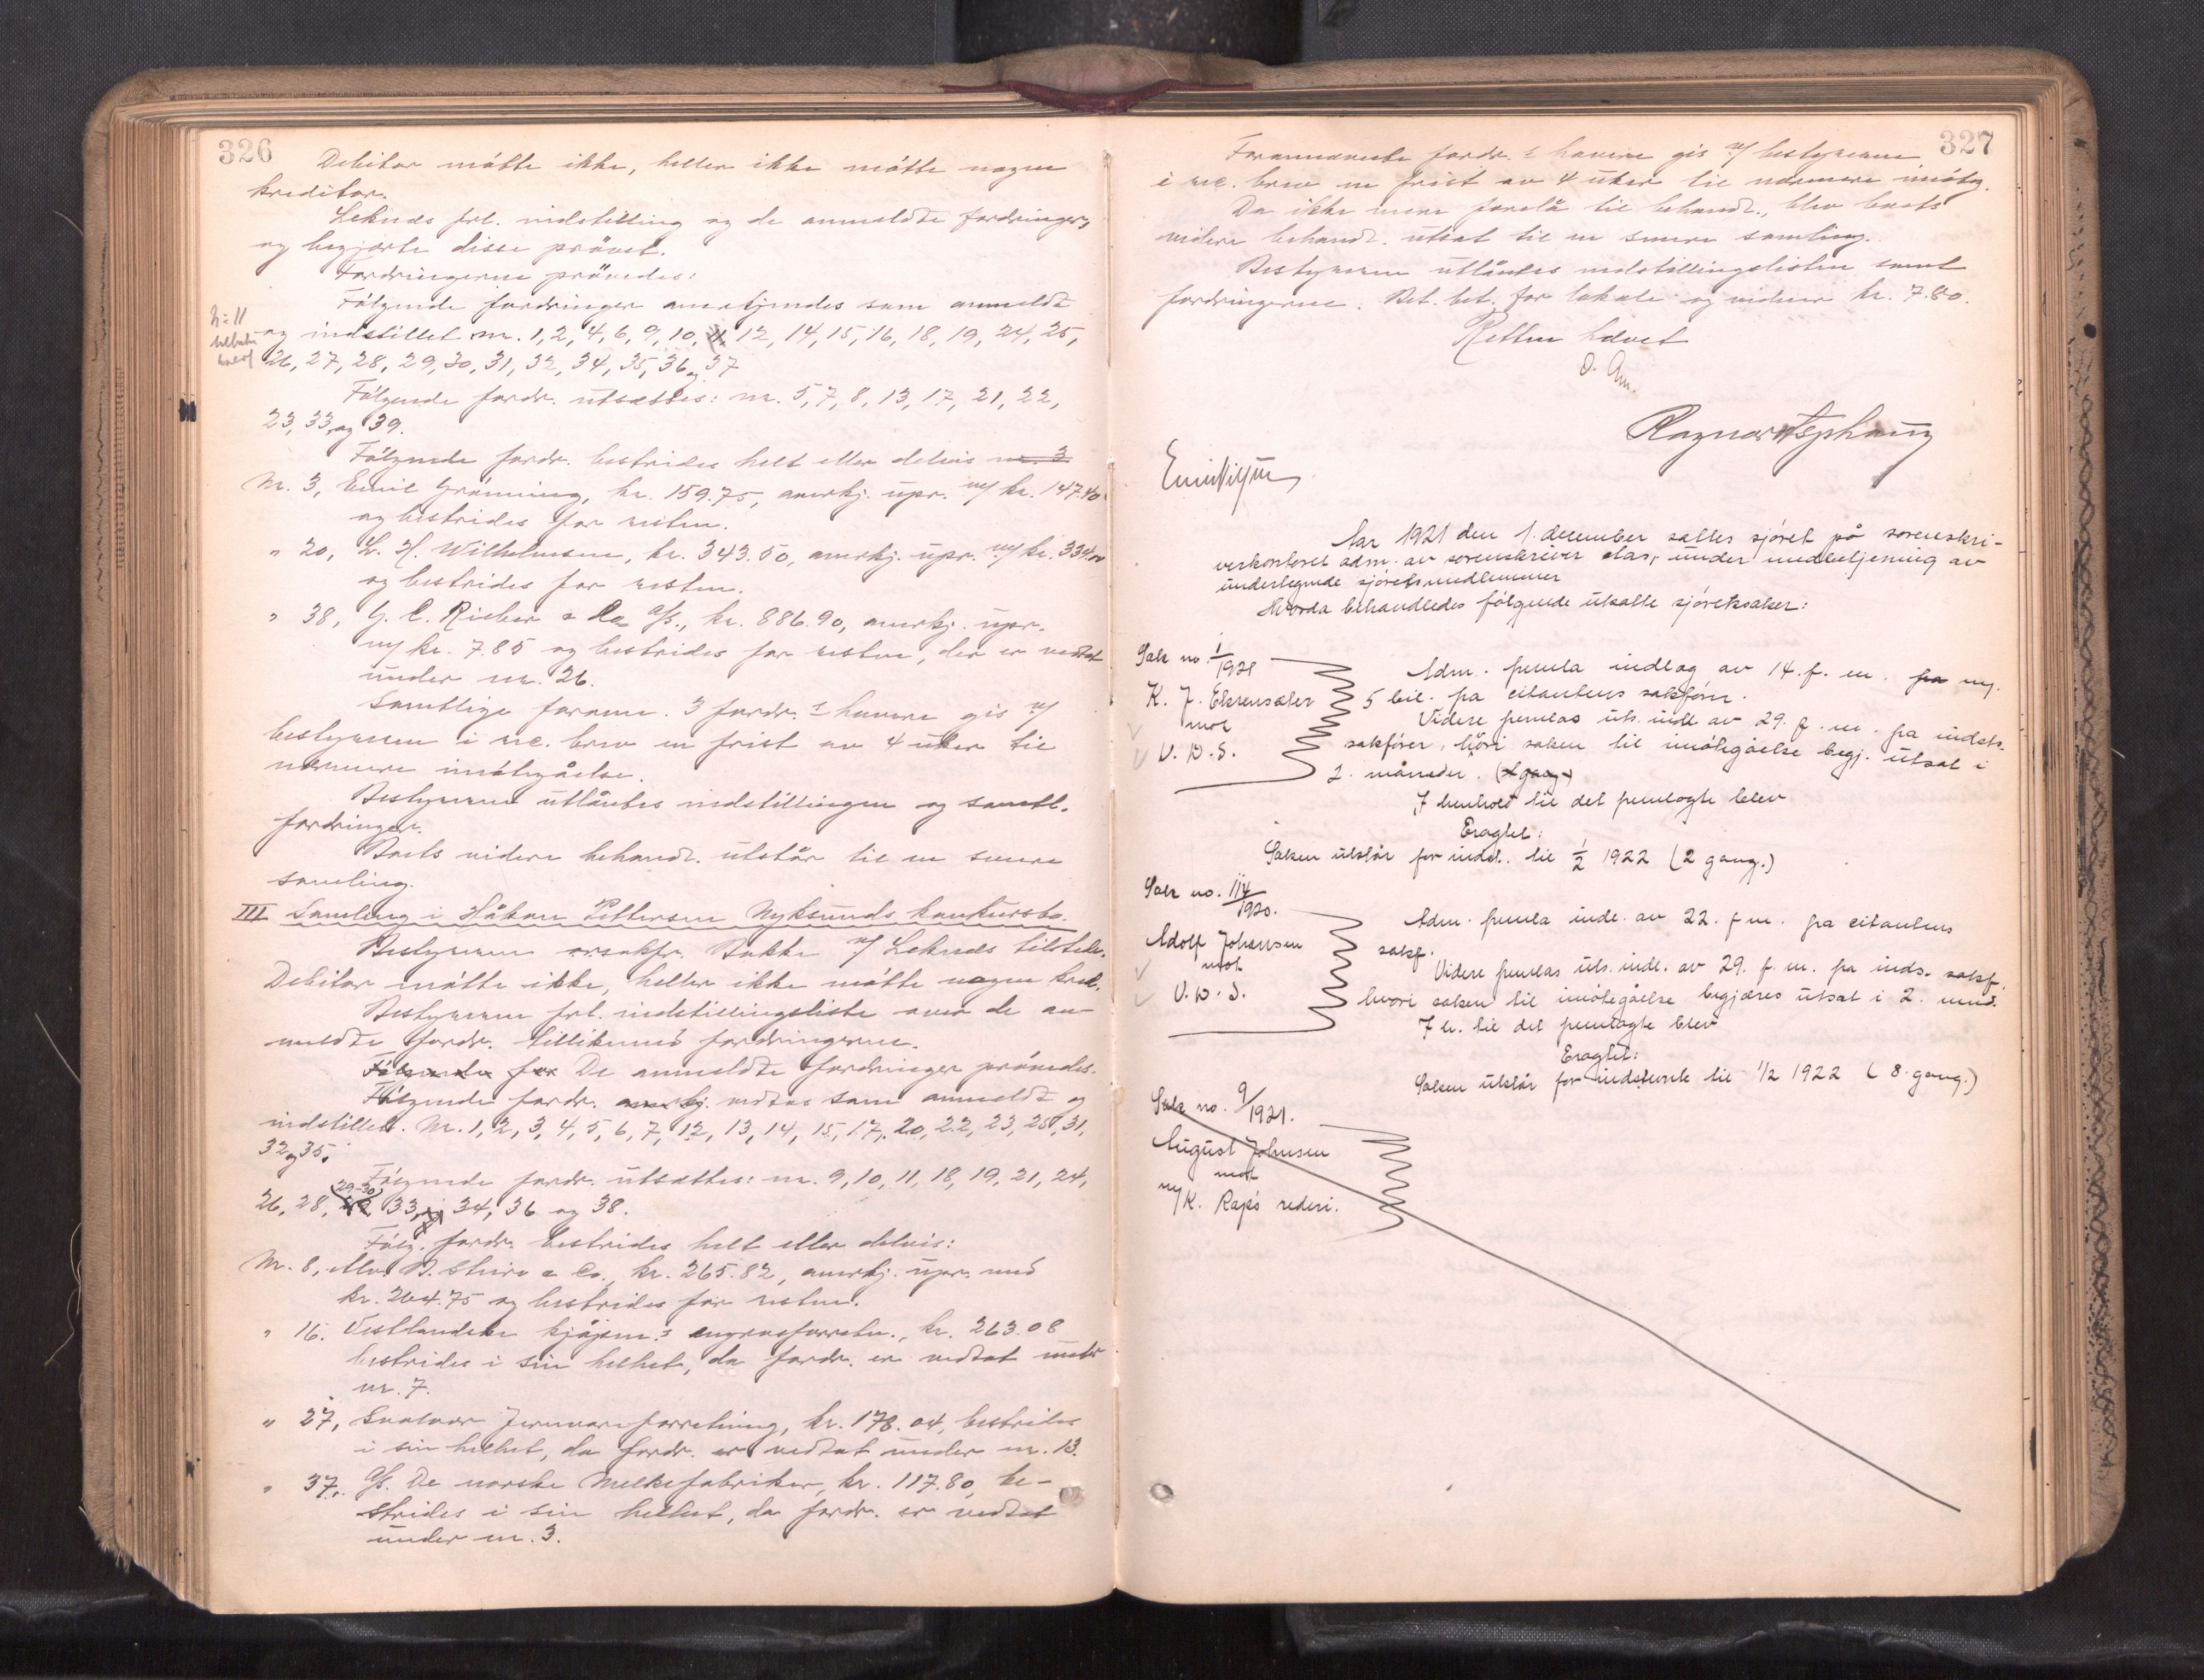 326
Debitor møtte ikke, heller ikke møtte nogen
kreditor.
Leknes frl. indstilling og de anmeldte fordringer,
og begjærte disse prøvet.
Fordringerne prøvedes:
Følgende fordringer anerkjendes som anmeldt
og indstillet nr. 1, 2, 4, 6, 9, 10, 11, 12, 14, 15, 16, 18, 19, 24, 25,
26, 27, 28, 29, 30, 31, 32, 34, 35, 36 og 37
Følgende fordr. utsættes: nr. 5, 7, 8, 13, 17, 21, 22,
23, 33 og 39.
Følgende fordr. bestrides helt eller delvis nr. 3
Nr. 3, Emil Grønning, kr. 159.75, anerkj. upr. m/ kr. 147.40
og bestrides for resten.
" 20, L. H. Wilhelmsen, kr. 343.50, anerkj. upr. m/ kr.
og bestrides for resten.
" 38, G. C. Rieber & Co A/S., kr. 886.90, anerkj. upr.
m/ kr. 7.85 og bestrides for resten, der er vedtat
under nr. 26.
Samtlige foranm. 3 fordr.s havere gis v/
bestyreren i rec. brev en frist av 4 uker til
nærmere imøtegåelse.
Bestyreren utlåntes indstillingen og samtl.
fordringer.
Boets videre behandl. utstår til en senere
samling.
III Samling i Håkon Pettersen Nyksunds konkursbo.
Bestyreren orsakfr. Bakke v/ Leknes tilstede.
Debitor møtte ikke, heller ikke møtte nogen kred.
Bestyreren frl. indstillingsliste over de an-
meldte fordr. tillikemed fordringerne.
Følgende for De anmeldte fordringer prøvedes.
Følgende fordr. anerkj. vedtas som anmeldt og
indstillet. Nr. 1, 2, 3, 4, 5, 6, 7, 12, 13, 14, 15, 17, 20, 22, 23, 25, 31,
32 og 35.
Følgende fordr. utsættes: nr. 9, 10, 11, 18, 19, 21, 24,
26, 28, 29-30, 33, 34, 36 og 38.
Følg. fordr. bestrides helt eller delvis:
Nr. 8, & Co., kr. 265.82, anerkj. upr. med
kr. 264.75 og bestrides for resten.
" 16. Vestlandske kjøpm.s engrosforretn., kr. 263.08
bestrides i sin helhet, da fordr. er vedtat under
nr. 7.
" 27, Svolvær Jernvareforretning, kr. 178.04, bestrides
i sin helhet, da fordr. er vedtat under nr. 13.
" 37, A/S. De norske Melkefabriker, kr. 117.80, be-
strides i sin helhet, da fordr. er vedtat
under nr. 3.
327
Forannævnte fordr.s havere gis v/ bestyreren
i rec. brev en frist av 4 uker til nærmere imøteg.
Da ikke mere forelå til behandl., blev boets
videre behandl. utsat til en senere samling.
Bestyreren utlåntes indstillingslisten samt
fordringerne. Bet. bet. for lokale og vidner kr. 7.80.
Retten hævet
Aar 1921 den 1. december sattes sjøret på sorenskri-
verkontoret adm. av sorenskriver Aas, under medbetjening av
undertegnede sjøretsmedlemmer
Hvorda behandledes følgende utsatte sjøretssaker:
Sak no. 1/1921
K. J. Ekrensæter
mot
V. D. S.
Adm. freml. indlæg av 14. f. m. fra m/
5 bil. fra citantens sakfører.
Videre fremlas uts. indl. av 29. f. m. fra indst.
sakfører, hvori saken til imøtegåelse begj. utsat i
2. måneder. (2 gang)
I henhold til det fremlagte blev
Eragtet:
Saken utstår for indst. til 1/2 1922 (2 gang.)
Sak no. 114/1920.
Adolf Johansen
mot
V. D. S.
Adm. fremla indl. av 22. f. m. fra citantens
sakf.
Videre fremlas uts. indl. av 29. f. m. fra inds. sakf.
hvori saken til imøtegåelse begjæres utsat i 2. mnd.
I h. til det fremlagte blev
Eragtet:
Saken utstår for indstevnte til 1/2 1922 (8. gang.)
Sak no. 9/1921.
August Johnsen
mot
m/K. Rap's rederi.